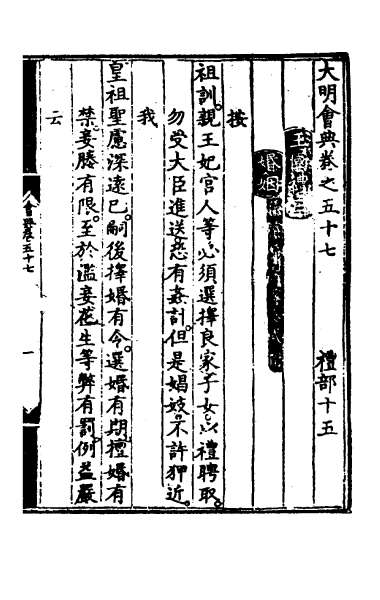 大明會典卷之五十七　禮部十五
王國禮三
婚姻
按
祖訓親王妃宮人等必須選擇良家子女以禮聘取
勿受大臣進送恐有姦計但是娼妓不許狎近
我
皇祖聖慮深遠已嗣後擇婚有令選婚有期擅婚有
禁妾媵有限至於濫妾花生等弊有罰例益嚴
云
會典卷五十七
一